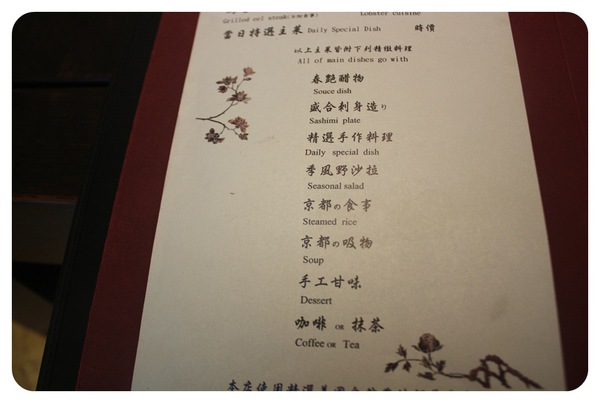 Grilled eel steak(不知食事)
Lobster cuisine
當日特選主菜 Daily Special Dish 時價
以上主菜皆附下列精緻料理
All of main dishes go with
春艷醋物
Souce dish
盛合刺身造り
Sashimi plate
精選手作料理
Daily special dish
季風野沙拉
Seasonal salad
京都の食事
Steamed rice
京都の吸物
Soup
手工甘味
Dessert
咖啡 OR 抹茶
Coffee OR Tea
本店使用精選美國